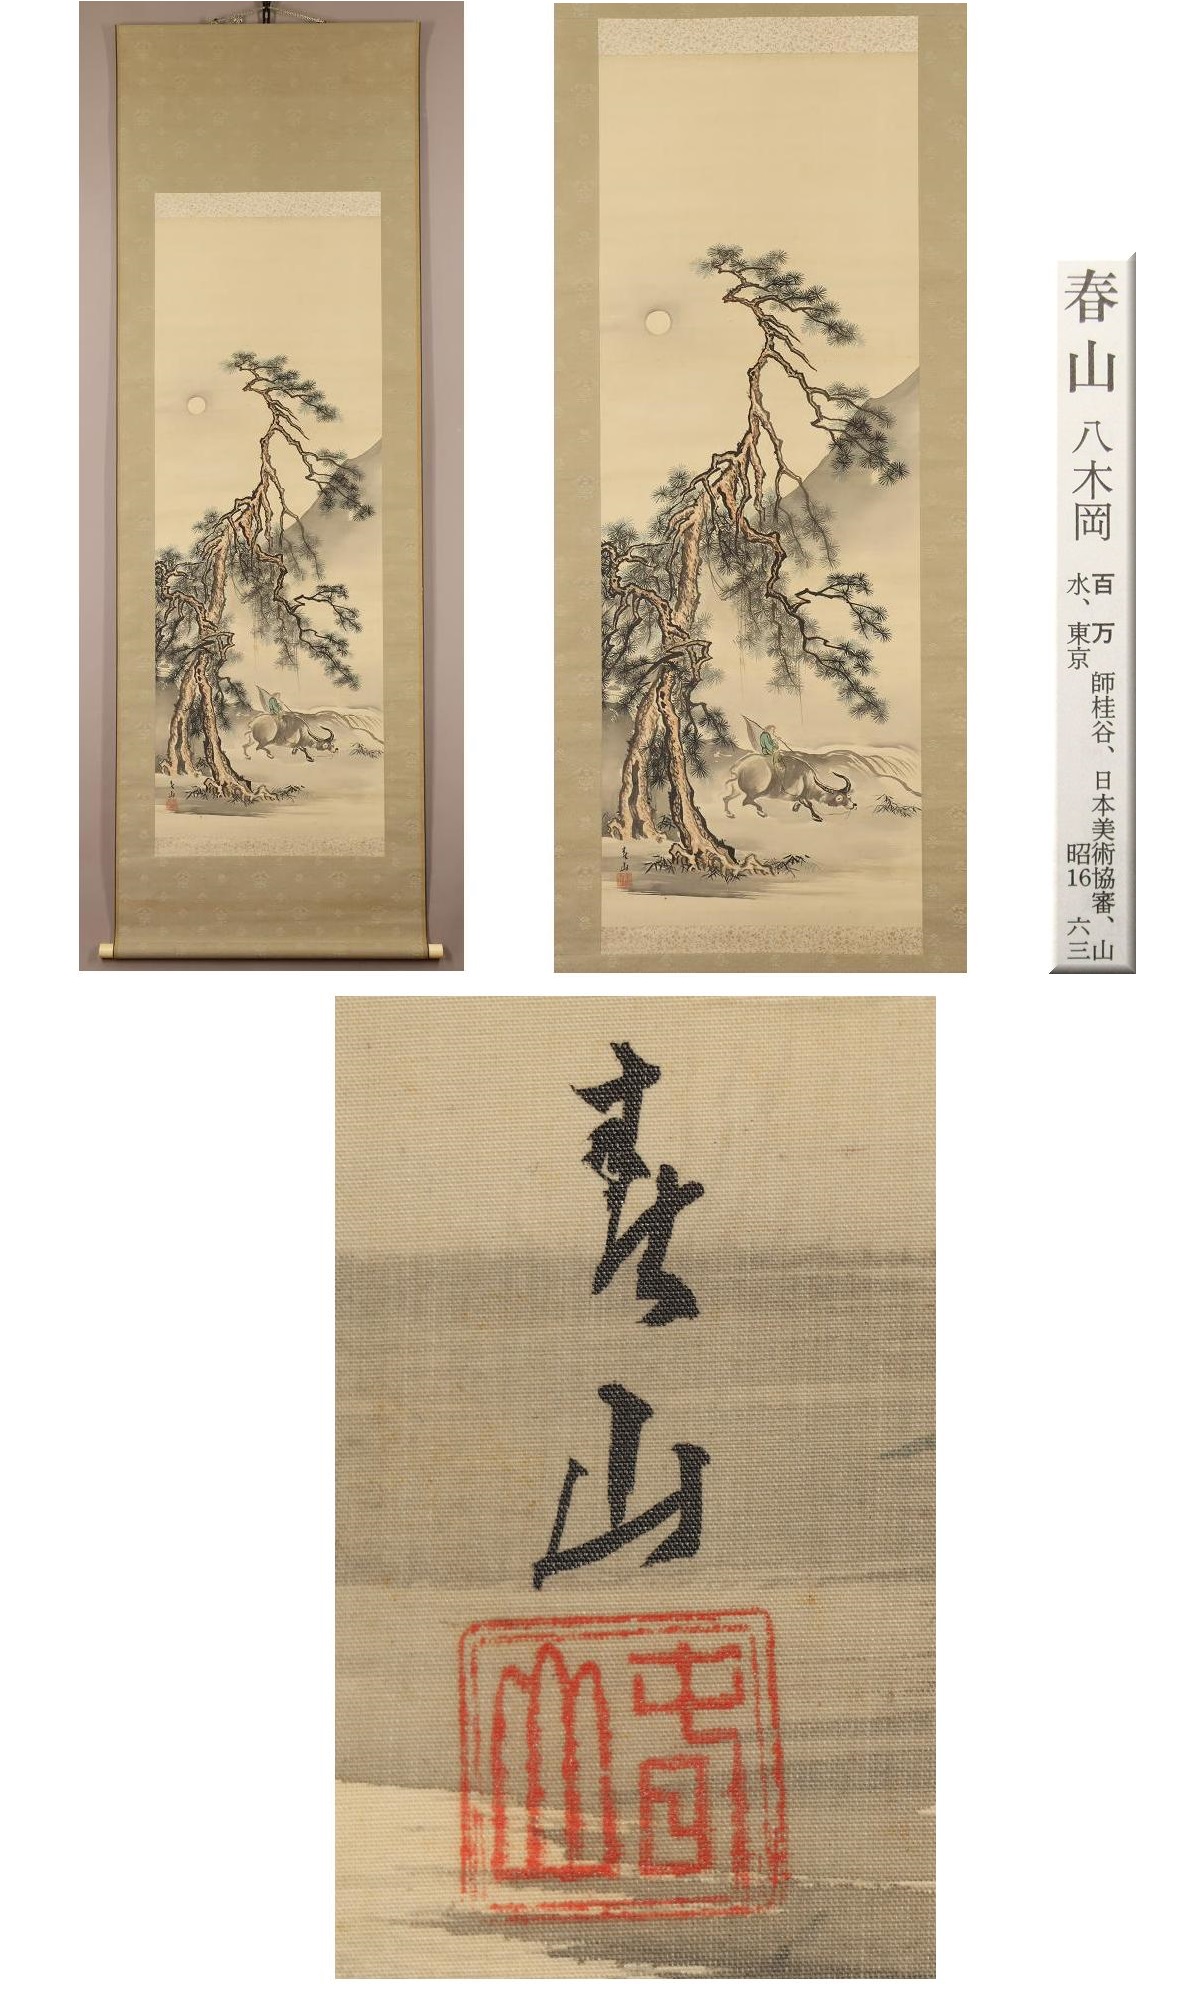 春山
春山
春山 八木岡
百万 師桂谷、日本美術協審、山
水、東京 昭16 六三
春山
春山